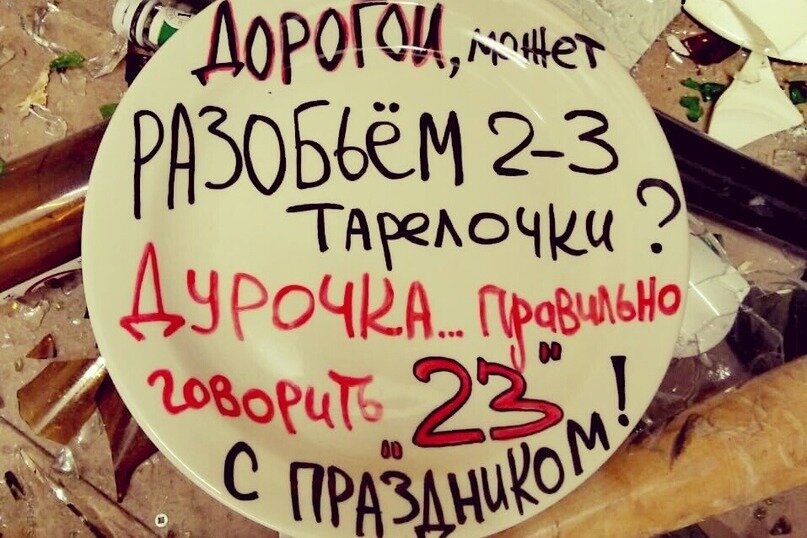 ДОРОГОЙ, может
РАЗОБЬЁМ 2-3
ТАРЕЛОЧКИ?
ДУРОЧКА... правильно
говорить „23"
С ПРАЗДНИКОМ!